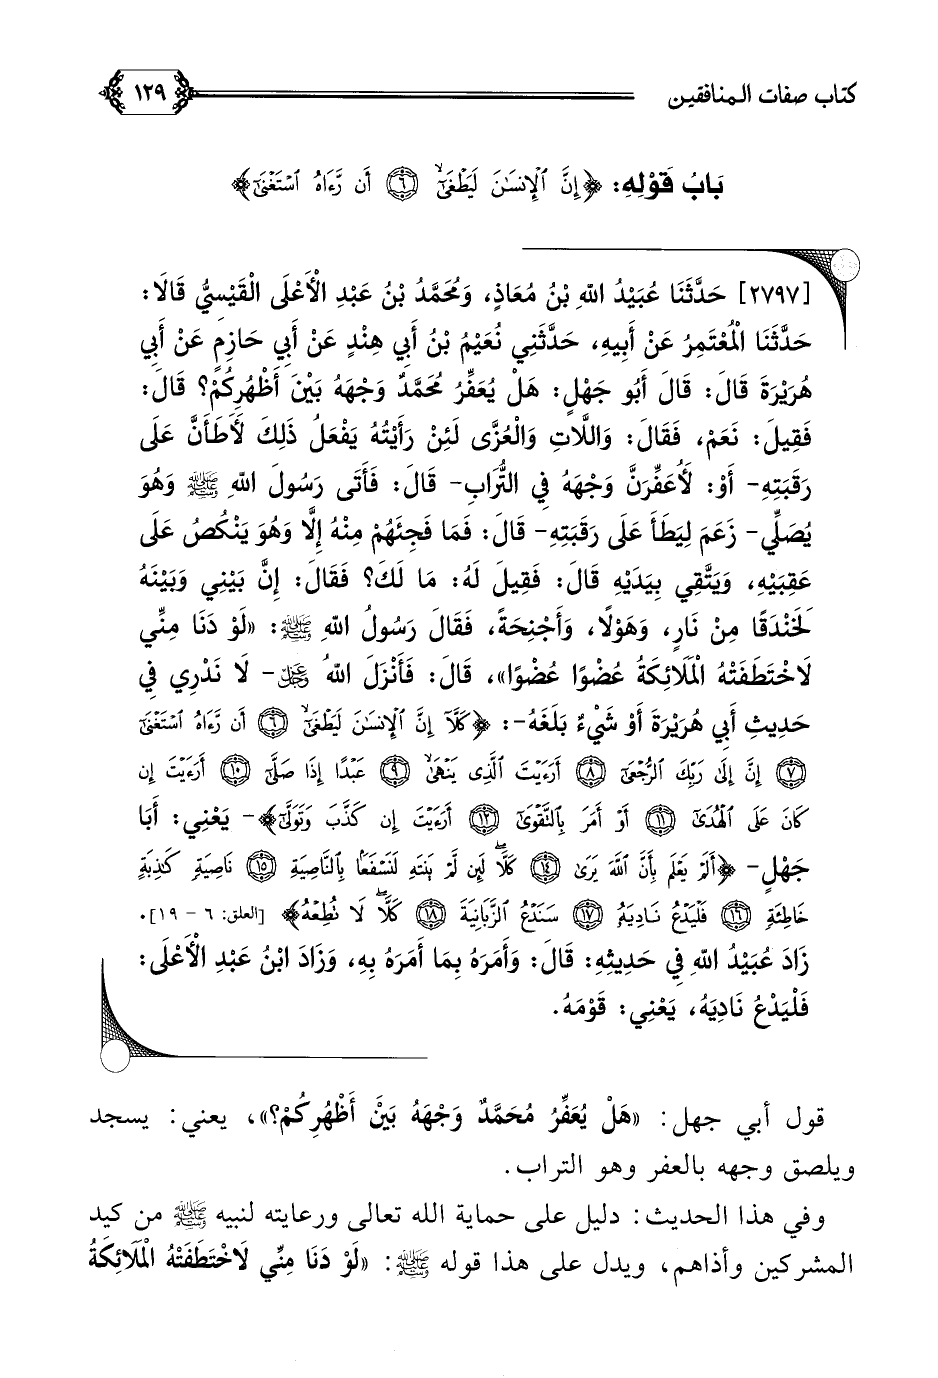 كتاب صفات المنافقين ١٢٩
بَابُ قَوْلِهِ: ﴿إِنَّ ٱلْإِنسَٰنَ لَيَطْغَىٰٓ ۝٦ أَن رَّءَاهُ ٱسْتَغْنَىٰٓ﴾
[٢٧٩٧] حَدَّثَنَا عُبَيْدُ اللهِ بْنُ مُعَاذٍ، وَمُحَمَّدُ بْنُ عَبْدِ الْأَعْلَى الْقَيْسِيُّ قَالَا:
حَدَّثَنَا الْمُعْتَمِرُ عَنْ أَبِيهِ، حَدَّثَنِي نُعَيْمُ بْنُ أَبِي هِنْدٍ عَنْ أَبِي حَازِمٍ عَنْ أَبِي
هُرَيْرَةَ قَالَ: قَالَ أَبُو جَهْلٍ: هَلْ يُعَفِّرُ مُحَمَّدٌ وَجْهَهُ بَيْنَ أَظْهُرِكُمْ؟ قَالَ:
فَقِيلَ: نَعَمْ، فَقَالَ: وَاللَّاتِ وَالْعُزَّى لَئِنْ رَأَيْتُهُ يَفْعَلُ ذَلِكَ لَأَطَأَنَّ عَلَى
رَقَبَتِهِ- أَوْ: لَأُعَفِّرَنَّ وَجْهَهُ فِي التُّرَابِ- قَالَ: فَأَتَى رَسُولَ اللهِ ﷺ وَهُوَ
يُصَلِّي- زَعَمَ لِيَطَأَ عَلَى رَقَبَتِهِ- قَالَ: فَمَا فَجِئَهُمْ مِنْهُ إِلَّا وَهُوَ يَنْكُصُ عَلَى
عَقِبَيْهِ، وَيَتَّقِي بِيَدَيْهِ قَالَ: فَقِيلَ لَهُ: مَا لَكَ؟ فَقَالَ: إِنَّ بَيْنِي وَبَيْنَهُ
لَخَنْدَقًا مِنْ نَارٍ، وَهَوْلًا، وَأَجْنِحَةً، فَقَالَ رَسُولُ اللهِ ﷺ: «لَوْ دَنَا مِنِّي
لَاخْتَطَفَتْهُ الْمَلَائِكَةُ عُضْوًا عُضْوًا»، قَالَ: فَأَنْزَلَ اللهُ عَزَّ وَجَلَّ- لَا نَدْرِي فِي
حَدِيثِ أَبِي هُرَيْرَةَ أَوْ شَيْءٌ بَلَغَهُ-: ﴿كَلَّآ إِنَّ ٱلْإِنسَٰنَ لَيَطْغَىٰٓ ۝٦ أَن رَّءَاهُ ٱسْتَغْنَىٰٓ
۝٧ إِنَّ إِلَىٰ رَبِّكَ ٱلرُّجْعَىٰٓ ۝٨ أَرَءَيْتَ ٱلَّذِى يَنْهَىٰ ۝٩ عَبْدًا إِذَا صَلَّىٰٓ ۝١٠ أَرَءَيْتَ إِن
كَانَ عَلَى ٱلْهُدَىٰٓ ۝١١ أَوْ أَمَرَ بِٱلتَّقْوَىٰٓ ۝١٢ أَرَءَيْتَ إِن كَذَّبَ وَتَوَلَّىٰٓ﴾- يَعْنِي: أَبَا
جَهْلٍ- ﴿أَلَمْ يَعْلَم بِأَنَّ ٱللَّهَ يَرَىٰ ۝١٤ كَلَّا لَئِن لَّمْ يَنتَهِ لَنَسْفَعًۢا بِٱلنَّاصِيَةِ ۝١٥ نَاصِيَةٍ كَٰذِبَةٍ
خَاطِئَةٍ ۝١٦ فَلْيَدْعُ نَادِيَهُۥ ۝١٧ سَنَدْعُ ٱلزَّبَانِيَةَ ۝١٨ كَلَّا لَا تُطِعْهُ﴾ [العلق: ٦ - ١٩].
زَادَ عُبَيْدُ اللهِ فِي حَدِيثِهِ: قَالَ: وَأَمَرَهُ بِمَا أَمَرَهُ بِهِ، وَزَادَ ابْنُ عَبْدِ الْأَعْلَى:
فَلْيَدْعُ نَادِيَهُ، يَعْنِي: قَوْمَهُ.
قول أبي جهل: «هَلْ يُعَفِّرُ مُحَمَّدٌ وَجْهَهُ بَيْنَ أَظْهُرِكُمْ؟»، يعني: يسجد
ويلصق وجهه بالعفر وهو التراب.
وفي هذا الحديث: دليل على حماية الله تعالى ورعايته لنبيه ﷺ من كيد
المشركين وأذاهم، ويدل على هذا قوله ﷺ: «لَوْ دَنَا مِنِّي لَاخْتَطَفَتْهُ الْمَلَائِكَةُ